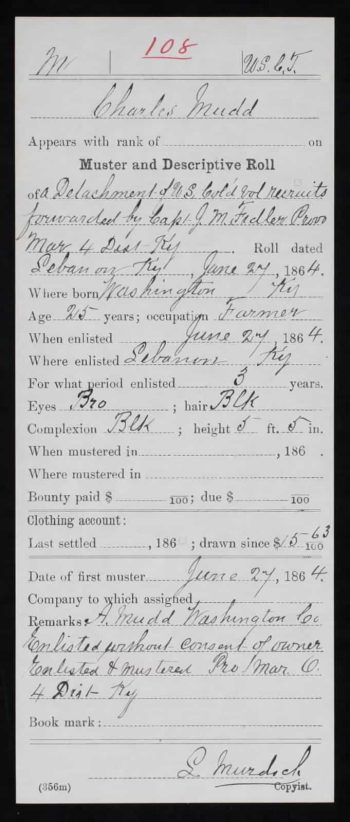 M 108 U.S.C.T.
Charles Mudd
Appears with rank of on
Muster and Descriptive Roll
of a Detachment of U.S. Col'd Vol recruits
forwarded by Capt. J. M. Fidler Provo
Mar 4 Dist. Ky. Roll dated
Lebanon Ky, June 27, 1864.
Where born Washington Ky
Age 25 years; occupation Farmer
When enlisted June 27, 1864.
Where enlisted Lebanon Ky
For what period enlisted 3 years.
Eyes Bro ; hair Blk
Complexion Blk ; height 5 ft. 5 in.
When mustered in , 186 .
Where mustered in
Bounty paid $ 100; due $ 100
Clothing account:
Last settled , 186 ; drawn since $15 63/100
Date of first muster June 27, 1864.
Company to which assigned
Remarks: A. Mudd Washington Co
Enlisted without consent of owner
Enlisted & mustered Pro Mar O.
4 Dist Ky
Book mark:
L. Murdoch
(356m) Copyist.